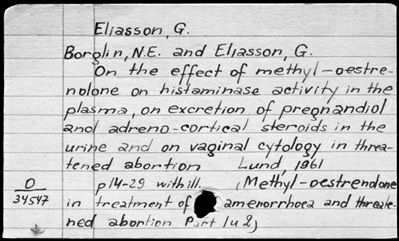 Eliasson, G.
Borglin, N.E. and Eliasson, G.
On the effect of methyl-oestre-
nolone on histaminase activity in the
plasma, on excretion of pregnandiol
and adreno-cortical steroids in the
urine and on vaginal cytology in threa-
tened abortion Lund, 1961
O p 14-29 with ill. (Methyl-oestrendone
34547 in treatment of amenorrhoea and threate-
ned abortion Part 1 u 2)